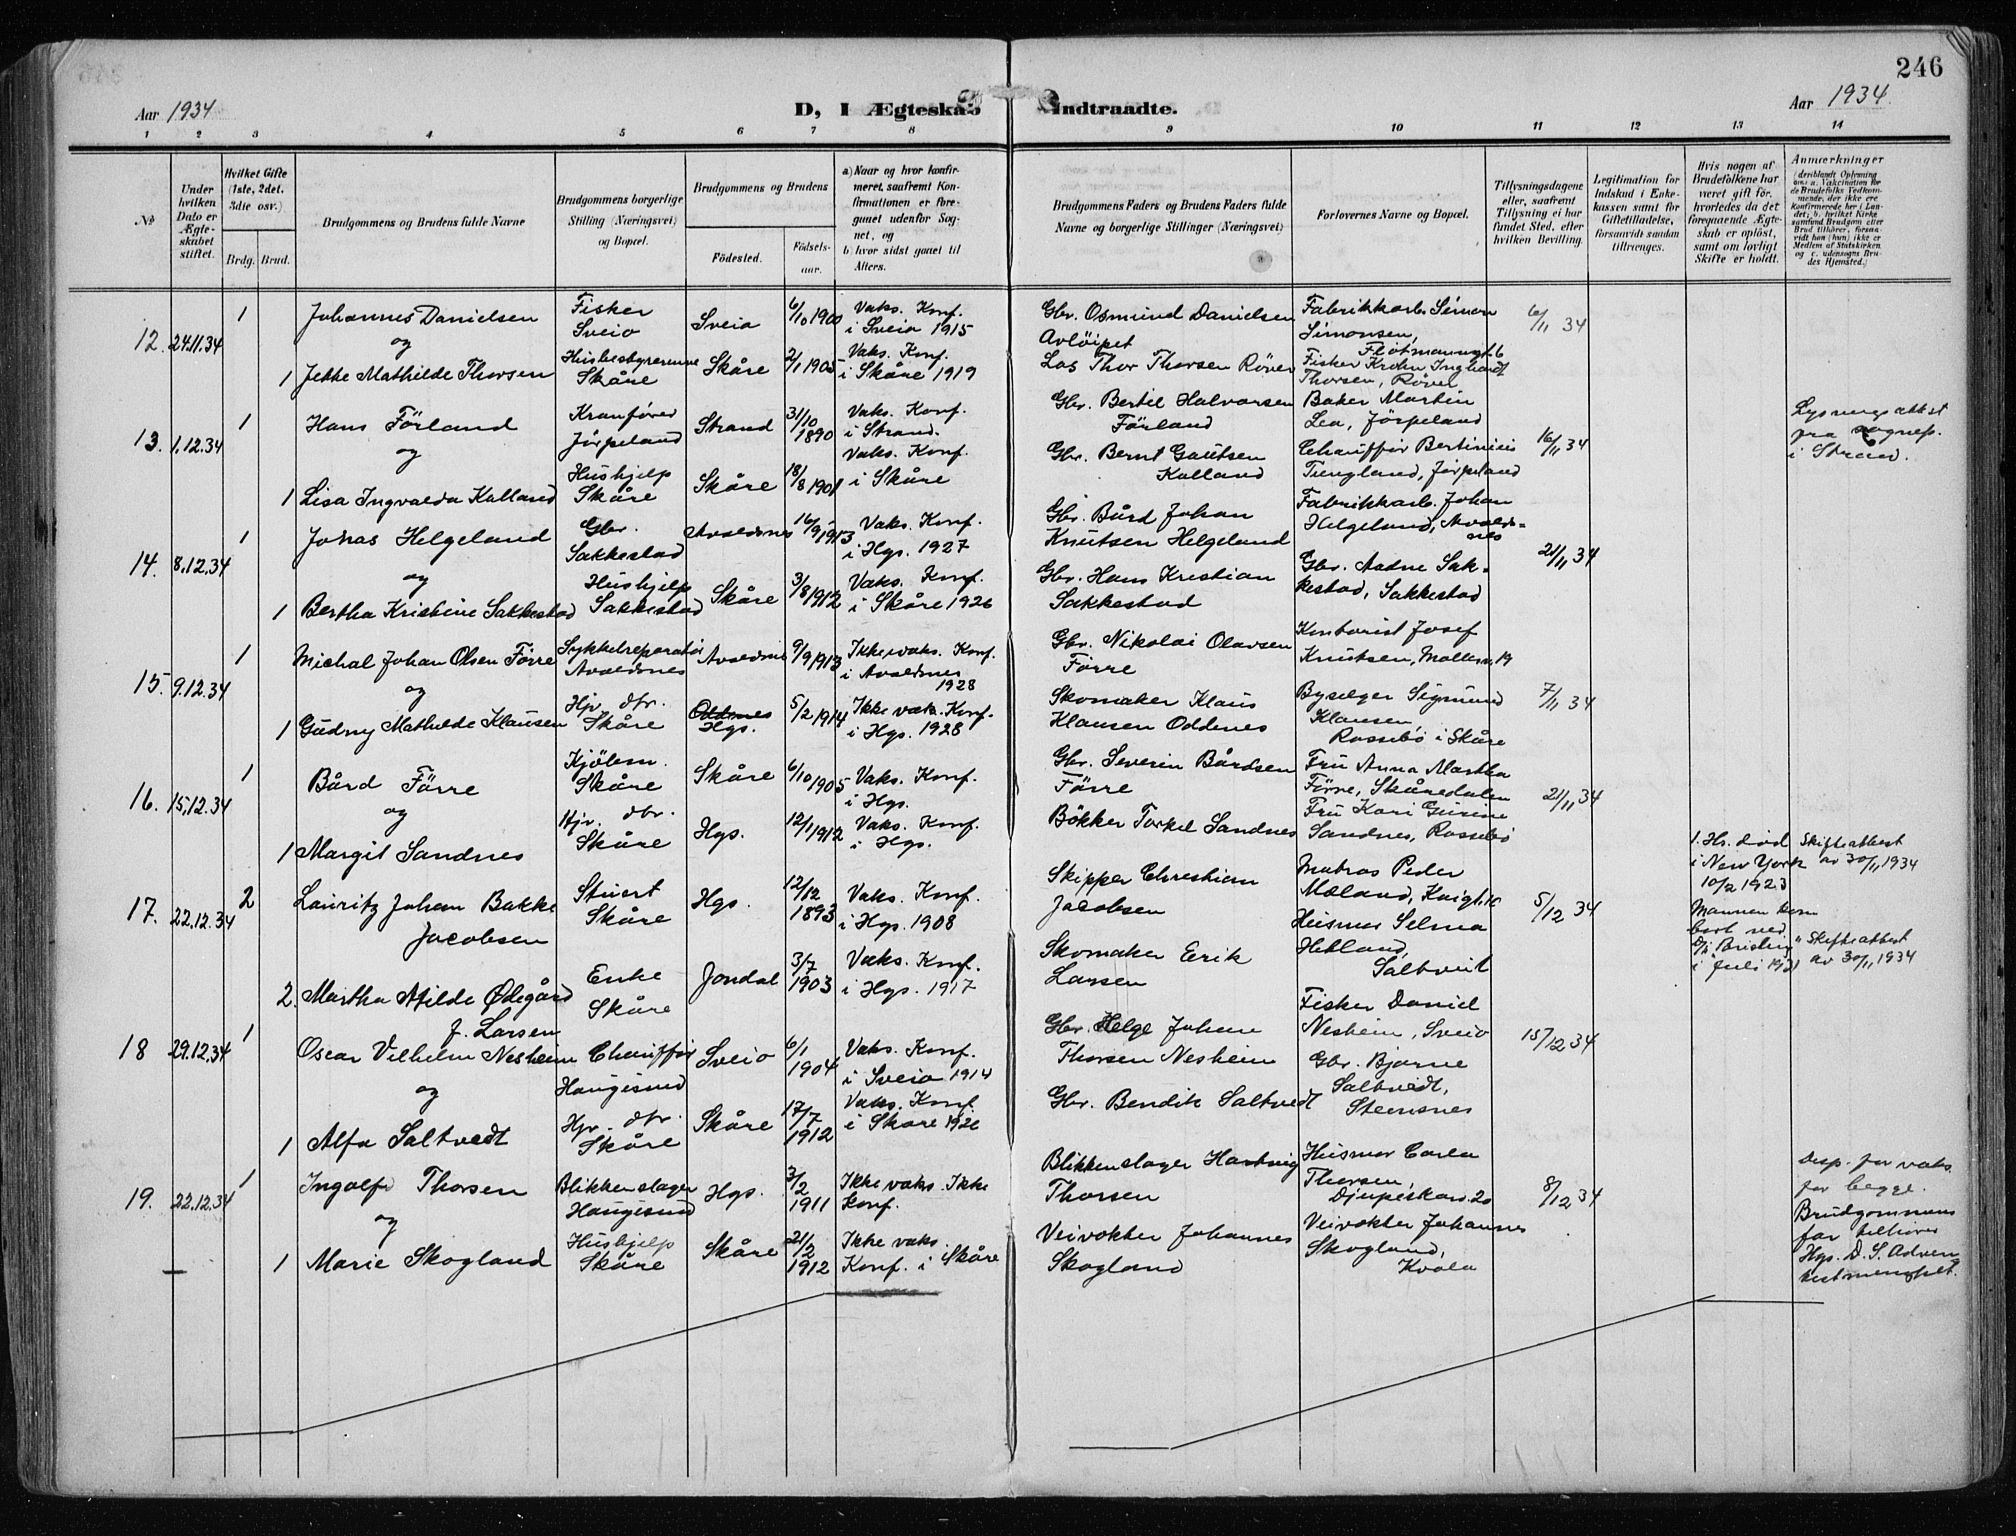 246
Aar 1934
D, I Ægteskab Indtraadte.
Aar 1934.
1 2 3 4 5 6 7 8 9 10 11 12 13 14
№
Under hvilken Dato er Ægteskabet stiftet.
Hvilket Gifte (1ste, 2det, 3die osv.)
Brdg. Brud.
Brudgommens og Brudens fulde Navne
Brudgommens borgerlige Stilling (Næringsvei) og Bopæl.
Brudgommens og Brudens
Födested.
Födselsaar.
a) Naar og hvor konfirmeret, saafremt Konfirmationen er foregaaet udenfor Sognet, og
b) hvor sidst gaaet til Alters.
Brudgommens Faders og Brudens Faders fulde Navne og borgerlige Stillinger (Næringsvei)
Forlovernes Navne og Bopæl.
Tillysningsdagene eller, saafremt Tillysning ei har fundet Sted, efter hvilken Bevilling.
Legitimation for Indskud i Enkekassen samt for Giftetilladelse, forsaavidt saadan tiltrænges.
Hvis nogen af Brudefolkene har været gift för, hvorledes da det foregaaende Ægteskab er oplöst, samt om lovligt Skifte er holdt.
Anmærkninger
12. 24.11.34 1 Johannes Danielsen Fisker Sveio Sveio 6/10 1900 Vaks. Konf. i Sveio 1915 Gbr. Osmund Danielsen Avløipet Fabrikkarb. Simon Simonsen, Flotmannsgt. 6 6/11 34
og
1 Jette Mathilde Thorsen Husbestyrerinne Skåre Skåre 2/1 1905 Vaks. Konf. i Skåre 1919 Los Thor Thorsen Røver Fisker Krohn Inghardt Thorsen, Røver
13. 1.12.34 1 Hans Förland Kranfører Jørpeland Strand 31/10 1890 Vaks. Konf. i Strand. Gbr. Bertil Halvorsen Förland Baker Martin Lea, Jørpeland 16/11 34 Lysningsattest fra sognep. i Strand.
og
1 Lisa Ingvalda Kalland Hushjelp Skåre Skåre 18/8 1901 Vaks. Konf. i Skåre Gbr. Bernt Gautsen Kalland Chauffør Bertinius Tungland, Jørpeland
14. 8.12.34 1 Jonas Helgeland Gbr. Sakkestad Avaldsnes 16/9 1913 Vaks. Konf. i Hgs. 1927 Gbr. Bård Johan Knutsen Helgeland Fabrikkarb. Johan Helgeland, Avaldsnes 21/11 34
og
1 Bertha Kristine Sakkestad Hushjelp Sakkestad Skåre 3/8 1912 Vaks. Konf. i Skåre 1926 Gbr. Hans Kristian Sakkestad Gbr. Aadne Sakkestad, Sakkestad
15. 9.12.34 1 Michal Johan Olsen Førre Sykkelreparatør Avaldsnes Avaldsnes 9/9 1913 Ikke vaks. Konf. i Avaldsnes 1928 Gbr. Nikolai Olavsen Førre Kontorist Josef Knutsen, 19 7/11 34
og
1 Gudny Mathilde Klausen Hjv. dtr. Skåre Oddenes Hgs. 5/2 1914 Ikke vak. Konf. i Hgs. 1928 Skomaker Klaus Klausen Oddenes Byselger Sigmund Klausen Rossebö i Skåre
16. 15.12.34 1 Bård Förre Kjölem. Skåre Skåre 6/10 1905 Vaks. Konf. i Hgs. Gbr. Severin Bårdsen Förre Fru Anna Martha Förre, Skåredalen 21/11 34
og
1 Margit Sandnes Hjv. dtr. Skåre Hgs. 12/1 1912 Vaks. Konf. i Hgs. Bökker Torkel Sandnes Fru Kari Gurine Sandnes, Rossebö
17. 22.12.34 2 Lauritz Johan Bakke Jacobsen Stuert Skåre Hgs. 12/12 1893 Vaks. Konf. i Hgs. 1908 Skipper Christian Jacobsen Matros Peder Mæland, 5/12 34 1. Hs. död i New York 10/2 1923 Skifteattest av 30/11 1934
2. Martha Alfilde Ødegård f. Larsen Enke Skåre Jondal 3/7 1903 Vaks. Konf. i Hgs. 1917 Skomaker Erik Larsen Husmor Selma Hetland, Saltveit Mannen kom bort med "Brisling" i juli 1931 Skifteattest av 30/11 1934
18 29.12.34 1 Oscar Vilhelm Nesheim Chauffør Haugesund Sveio 6/1 1904 Vaks. Konf. i Sveio 1914 Gbr. Helge Johan Thorsen Nesheim Fisker Daniel Nesheim, Sveio 15/12 34
og
1 Alfa Saltvedt Hjv. dtr. Skåre Skåre 17/7 1912 Vaks. Konf. i Skåre 1926 Gbr. Bendik Saltvedt Gbr. Bjarne Saltvedt, Stemsnes
19. 22.12.34 1 Ingolf Thorsen Blikkenslager Haugesund Hgs. 3/2 1911 Ikke vaks. Ikke Konf. Blikkenslager Hartvig Thorsen Husmor Carla Thorsen, Djupeskar. 20 8/12 34 Disp. for vaks. for begge. Brudgommens far tilhører Hgs. D. S. Adventistmenighet.
og
1 Marie Skogland Hushjelp Skåre Skåre 21/2 1912 Ikke vaks. Konf. i Skåre Veivokter Johannes Skogland Veivokter Johannes Skogland, Kvala